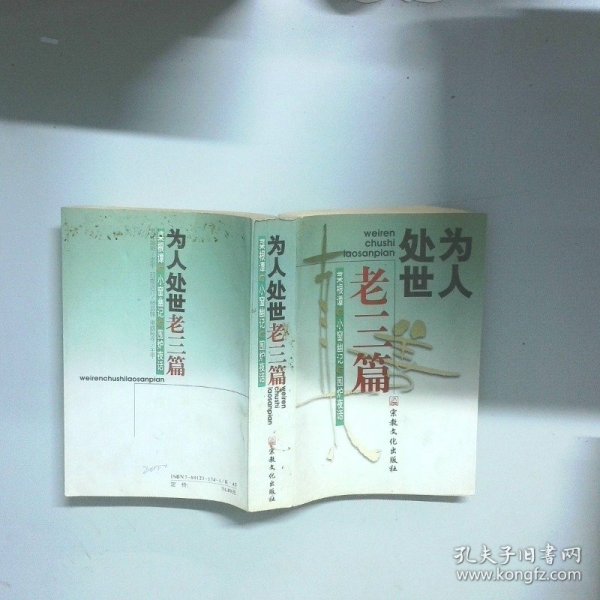 为人处世
老三篇
菜根谭 小窗幽记 围炉夜话
weirenchushilaosanpian
2005.
定价
为人处世老三篇
菜根谭 小窗幽记 围炉夜话
weiren
chushi
laosanpian
宗教文化出版社
weiren
chushi
laosanpian
为人
处世
老三篇
菜根谭 小窗幽记 围炉夜话
宗教文化出版社
孔夫子旧书网
www.kongfz.com